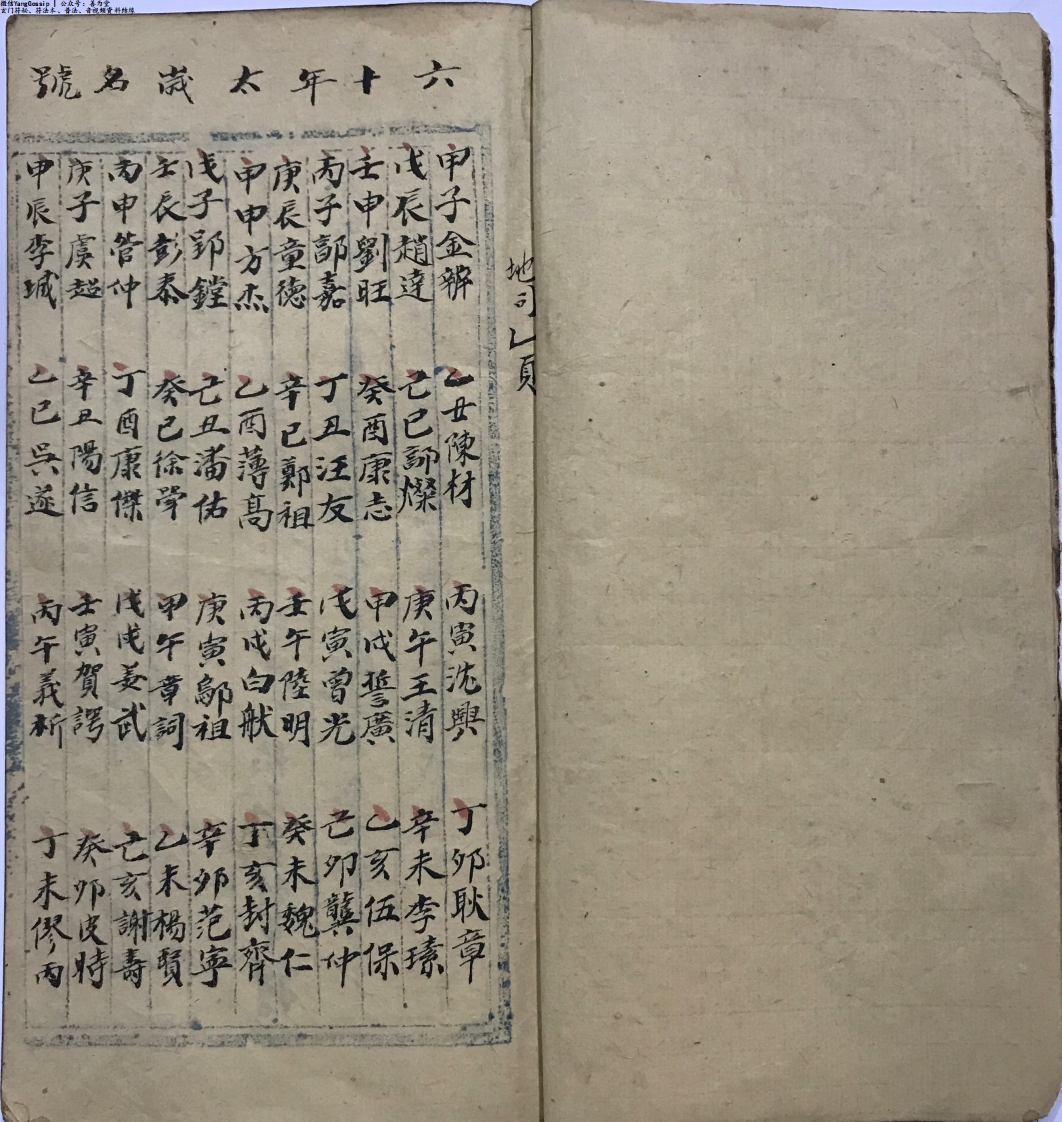 微信YangGossip | 公众号：善为堂
玄门符秘、符法本、音法、音视频資料结缘
六十年太歲名號
甲子金辨 乙丑陳材 丙寅沈興 丁卯耿章
戊辰趙達 己巳郭燦 庚午王清 辛未李瑹
壬申劉旺 癸酉康志 甲戌誓廣 乙亥伍保
丙子郭嘉 丁丑汪友 戊寅曾光 己卯龔仲
庚辰童德 辛巳鄭祖 壬午陸明 癸未魏仁
甲申方杰 乙酉薄高 丙戌白敝 丁亥封齊
戊子郢鏜 己丑潘佑 庚寅鄔祖 辛卯范寧
壬辰彭泰 癸巳徐斈 甲午章詞 乙未楊賢
丙申管仲 丁酉康傑 戊戌姜武 己亥謝壽
庚子虞超 辛丑陽信 壬寅賀諤 癸卯皮時
甲辰李堿 乙巳吳遂 丙午義祈 丁未僇丙
地司乙頁